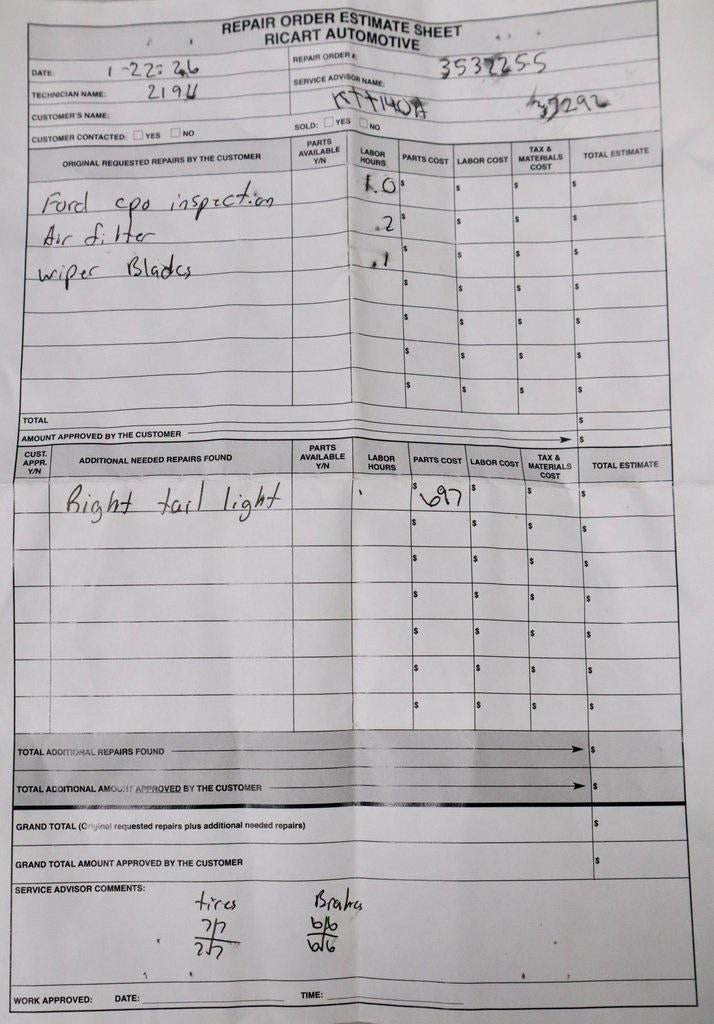 REPAIR ORDER ESTIMATE SHEET
RICART AUTOMOTIVE
DATE: 1-22-26 REPAIR ORDER #:
TECHNICIAN NAME: SERVICE ADVISOR NAME:
CUSTOMER'S NAME:
CUSTOMER CONTACTED: YES NO SOLD: YES NO
ORIGINAL REQUESTED REPAIRS BY THE CUSTOMER PARTS AVAILABLE Y/N LABOR HOURS PARTS COST LABOR COST TAX & MATERIALS COST TOTAL ESTIMATE
Ford cpo inspection 1.0 $ $ $ $
Air filter .2 $ $ $ $
wiper Blades .1 $ $ $ $
$ $ $ $
$ $ $ $
$ $ $ $
$ $ $ $
TOTAL $
AMOUNT APPROVED BY THE CUSTOMER $
CUST. APPR. Y/N ADDITIONAL NEEDED REPAIRS FOUND PARTS AVAILABLE Y/N LABOR HOURS PARTS COST LABOR COST TAX & MATERIALS COST TOTAL ESTIMATE
Right tail light $ 697 $ $ $
$ $ $ $
$ $ $ $
$ $ $ $
$ $ $ $
$ $ $ $
$ $ $ $
TOTAL ADDITIONAL REPAIRS FOUND $
TOTAL ADDITIONAL AMOUNT APPROVED BY THE CUSTOMER $
GRAND TOTAL (Original requested repairs plus additional needed repairs) $
GRAND TOTAL AMOUNT APPROVED BY THE CUSTOMER $
SERVICE ADVISOR COMMENTS:
tires Brakes
7/7 6/6
7/7 6/6
WORK APPROVED: DATE: TIME: